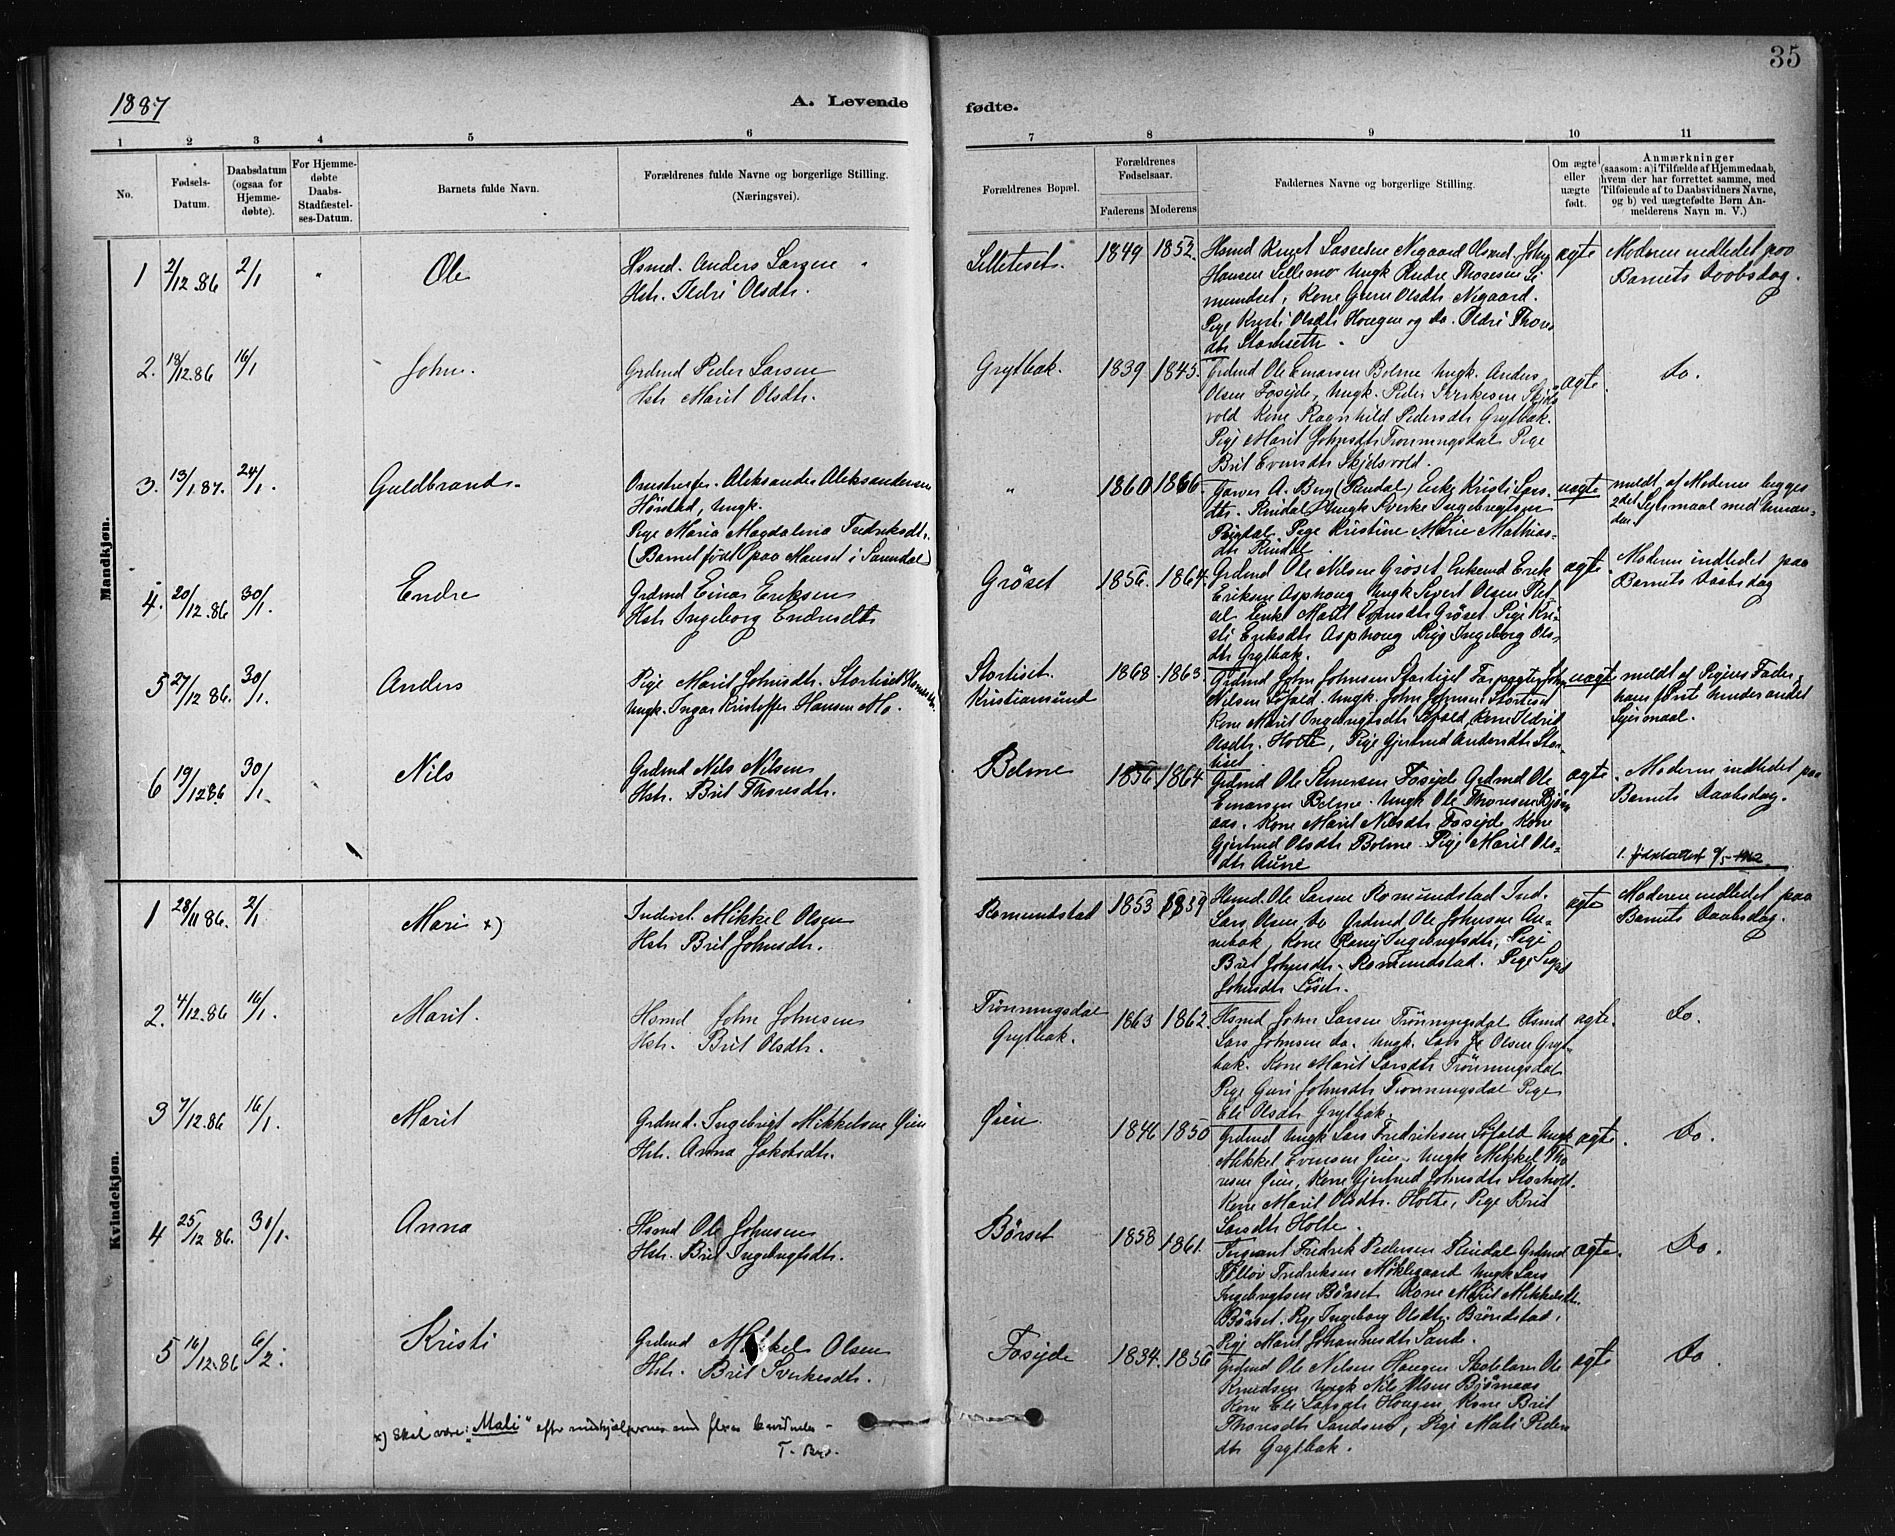 35
1887
A. Levende fødte.
1 2 3 4 5 6 7 8 9 10 11
No.
Fødsels-Datum.
Daabsdatum (ogsaa for Hjemmedøbte).
For Hjemmedøbte Daabs-Stadfæstelses-Datum.
Barnets fulde Navn.
Forældrenes fulde Navne og borgerlige Stilling.
(Næringsvei).
Forældrenes Bopæl.
Forældrenes Fødselsaar.
Faderens Moderens
Faddernes Navne og borgerlige Stilling.
Om ægte eller uægte født.
Anmærkninger
(saasom: a) i Tilfælde af Hjemmedaab,
hvem der har forrettet samme, med
Tilføiende af to Daabsvidners Navne,
og b) ved uægtefødte Børn Anmelderens Navn m. V.)
Mandkjøn.
1 2/12 86 2/1 " Ole
Hsmd. Anders Larsen
Hstr. Ildri Olsdtr.
Lilletiset. 1849 1852.
Hansen Lillemo Ungk Endre Thoresen
Kone Guru Olsdtr Negaard.
Pige Kristi Olsdtr Hougen og do. Oldri Thores
dtr Stortiseth
ægte
Moderen indledet paa
Barnets Daabsdag.
2. 18/12.86 16/1 John.
Grdmd Peder Larsen
Hstr Marit Olsdtr.
Grytbak. 1839 1845.
Grdmd Ole Einarsen Bolme Ungk. Anders
Olsen Fosejde, Ungk. Peder Sverkesen Skjels
vold Kone Ragnhild Pedersdtr Grytbak.
Pige Marit Johnsdtr Trønningsdal Pige
Brit Evensdtr Skjelsvold.
ægte. Do.
3. 13/1.87. 24/1. Guldbrand.
Aleksander Aleksandersen
Ungk.
Pige Maria Magdalena Fredriksdtr.
(Barnet født paa i Surendal)
" 1860 1866
Garver A. Berg (Rindal) Enke Kristi Lars-
dtr. Rindal Ungk Sverke Ingebrigtsen
Rindal. Pige Kristine Marie Mathias-
dtr Rindal
uægte
meldt af Moderen begges
2det Leiermaal med hinan-
den.
4. 20/12.86 30/1. Endre
Grdmd Einar Eriksen
Hstr Ingeborg Endresdtr
Grøset 1856. 1864.
Grdmd Ole Nilsen Grøset Enkemd Erik
Eriksen Asphoug Ungk Sivert Olsen
Enke Marit Grøset Pige Kri-
sti Eriksdtr Asphoug Pige Ingeborg Ols-
dtr Grytbak.
ægte.
Moderen indledet paa
Barnets Daabsdag
5 27/12 86. 30/1. Anders
Pige Marit Johnsdtr. Stortiset
Ungk. Ingar Kristoffer Hansen Mo.
Stortiset.
Kristiansund
1868. 1863.
Grdmd John Johnsen Stortiset
Nilsen Løfald. Ungk. John Johnsen Stortiset
Kone Marit Ingebrigtsdtr Løfald, Kone Ildrid
Olsdtr. Holte, Pige Gjertrud Andersdtr Stor-
tiset
uægte
meldt af Pigens Fader,
hans første hendes andet
Leiermaal.
6 19/12 86 30/1. Nils
Grdmd Nils Nilsen
Hstr. Brit Thoresdtr.
Bolme 1856 1864
Grdmd Ole Fosejde Grdmd Ole
Einarsen Bolme. Ungk Ole Thoresen Bjørn
aas. Kone Marit Nilsdtr Fosejde Kone
Gjertrud Olsdtr Bolme Pige Marit Ols-
dtr Aune
ægte
Moderen indledet paa
Barnets Daabsdag.
1. fødselsattest
Kvindekjøn.
1 28/11 86. 2/1 Mari x)
Inderst. Mikkel Olsen
Hstr Brit Johnsdtr.
Romundstad 1853 1859
Hsmd. Ole Larsen Romundstad Ind.
Lars Olsen do Grdmd Ole Johnsen
Kone Ingebrigtsdtr, Pige
Brit Johnsdtr. Romundstad. Pige Sigrid
Johnsdtr Løset.
ægte
Moderen indledet paa
Barnets Daabsdag.
2. 4/12.86 16/1. Marit.
Hsmd John Johnsen
Hstr. Brit Olsdtr.
Trønningsdal
Grytbak.
1863 1862.
Hsmd John Larsen Trønningsdal Hsmd
Lars Johnsen do. Ungk. Lars Olsen Gryt-
bak. Kone Marit Larsdtr Trønningsdal
Pige Guri Johnsdtr Trønningsdal Pige
Eli Olsdtr Grytbak.
ægte. Do.
3 7/12.86 16/1. Marit
Grdmd. Ingebrigt Mikkelsen Øien
Hstr. Anna Jakobsdtr.
Øien. 1846 1850
Grdmd Ungk Lars Fredriksen Løfald Ungk
Mikkel Evensen Øien. Ungk Mikkel Tho
resen Øien, Kone Gjertrud Johnsdtr Storholt.
Kone Marit Olsdtr. Holte, Pige Brit
Larsdtr Holte.
ægte. Do.
4 25/12 86. 30/1. Anna
Hsmd Ole Johnsen
Hstr. Brit Ingebrigtsdtr.
Børset 1858 1861.
Sergeant Fredrik Pedersen Rindal Grdmd
Fredriksen Møklegaard Ungk Lars
Ingebrigtsen Børset. Kone Marit Mikkelsdtr.
Børset. Pige Ingeborg Olsdtr. Brøndstad,
Pige Marit Johannesdtr Sande.
ægte. Do.
5 16/12.86 6/2. Kristi
Grdmd Mikkel Olsen
Hstr. Brit Sverkesdtr.
Fosejde 1834. 1856
Grdmd Ole Nilsen Hougen Skolelærer Ole
Knudsen Ungk Nils Olsen Bjørnaas
Kone Eli Larsdtr Hougen Kone Brit
Thoresdtr Sandsen, Pige Mali Peders
dtr Grytbak.
ægte Do.
x) Skal være: "Mali" efter